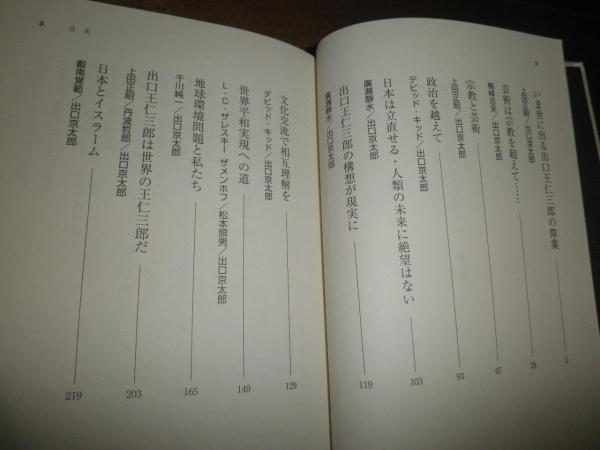 2
いま世に出る出口王仁三郎の偉業 5
上田正昭/出口京太郎
芸術は宗教を超えて…… 29
梅棹忠夫/出口京太郎
宗教と芸術 67
上田正昭/出口京太郎
政治を越えて 93
デビッド・キッド/出口京太郎
日本は立直せる・人類の未来に絶望はない 103
廣瀬静水/出口京太郎
出口王仁三郎の構想が現実に 119
廣瀬静水/出口京太郎
3 目次
文化交流で相互理解を 129
デビッド・キッド/出口京太郎
世界平和実現への道 149
L・C・ザレスキー ザメンホフ/松本照男/出口京太郎
地球環境問題と私たち 165
千川純一/出口京太郎
出口王仁三郎は世界の王仁三郎だ 203
上田正昭/丹波哲郎/出口京太郎
日本とイスラーム 219
叡南覚範/出口京太郎